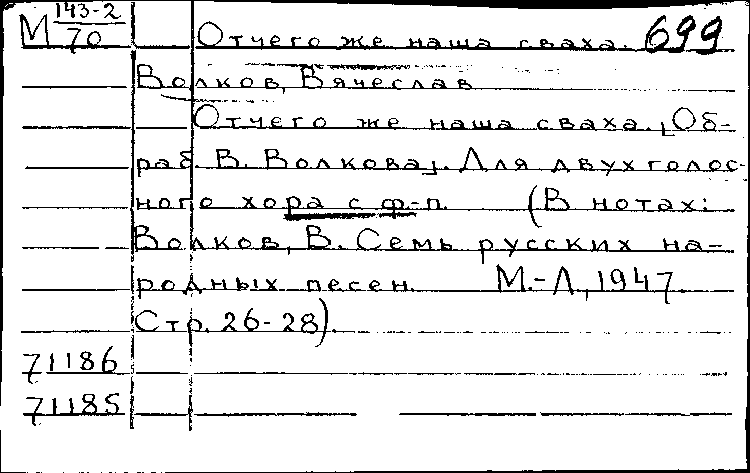 М 143-2/70 Отчего же наша сваха. 699
Волков, Вячеслав
Отчего же наша сваха. [Об-
раб. В. Волкова]. Для двухголос-
ного хора с ф-п. (В нотах:
Волков, В. Семь русских на-
родных песен. М.-Л., 1947.
Стр. 26-28).
71186
71185